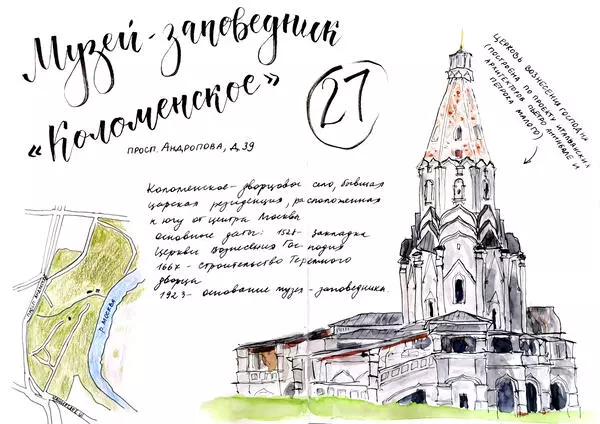 Музей-заповедник
«Коломенское»
просп. Андропова, д. 39
27
Церковь Вознесения Господня
(построена по проекту итальянских
архитекторов Пьетро Аннибале и
Петрока Малого)
Коломенское - дворцовое село, бывшая
царская резиденция, расположенная
к югу от центра Москвы.
Основные даты: закладка
Церкви Вознесения Господня
1667 - строительство Теремного
дворца
1923 - основание музея-заповедника.
р. Москва